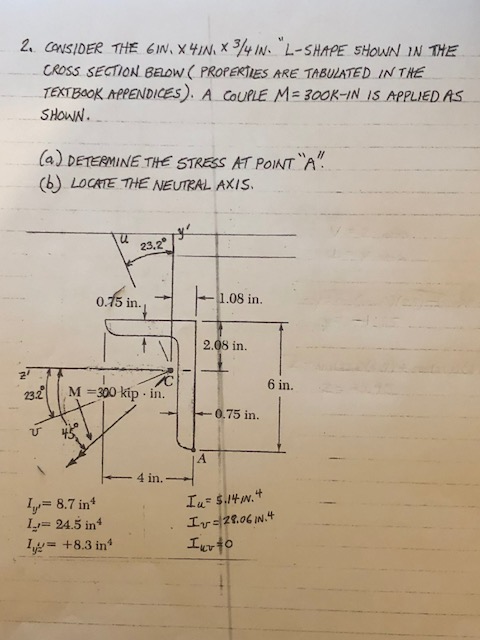 2. CONSIDER THE 6IN. X 4IN. X 3/4 IN. "L-SHAPE SHOWN IN THE
CROSS SECTION BELOW ( PROPERTIES ARE TABULATED IN THE
TEXTBOOK APPENDICES). A COUPLE M=300K-IN IS APPLIED AS
SHOWN.
(a.) DETERMINE THE STRESS AT POINT "A".
(b) LOCATE THE NEUTRAL AXIS.
u y'
23.2°
0.75 in. 1.08 in.
2.08 in.
z' C
6 in.
23.2° M = 300 kip · in.
0.75 in.
v 45°
A
4 in.
Iy' = 8.7 in⁴ Iu = 5.14 IN.⁴
Iz' = 24.5 in⁴ Iv = 28.06 IN.⁴
Iy'z' = +8.3 in⁴ Iuv = 0